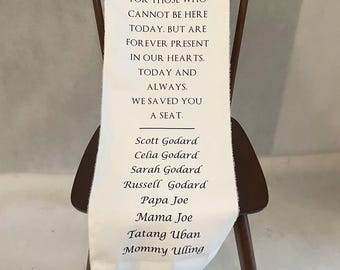 FOR THOSE WHO
CANNOT BE HERE
TODAY, BUT ARE
FOREVER PRESENT
IN OUR HEARTS,
TODAY AND
ALWAYS,
WE SAVED YOU
A SEAT.
Scott Godard
Celia Godard
Sarah Godard
Russell Godard
Papa Joe
Mama Joe
Tatang Uban
Mommy Ulling